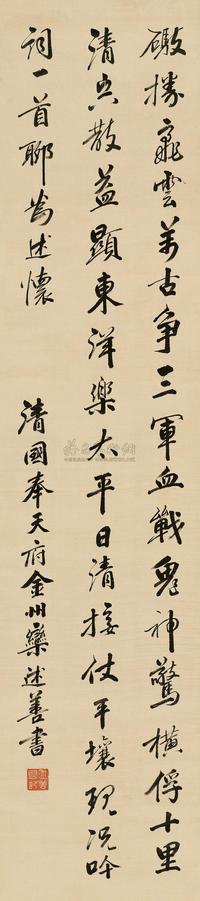 礮捲飛雲萬古爭三軍血戰鬼神驚橫俘十里
清兵散益顯東洋樂太平日清接仗平壤現況吟
詞一首聊為述懷
清國奉天府金州欒述善書